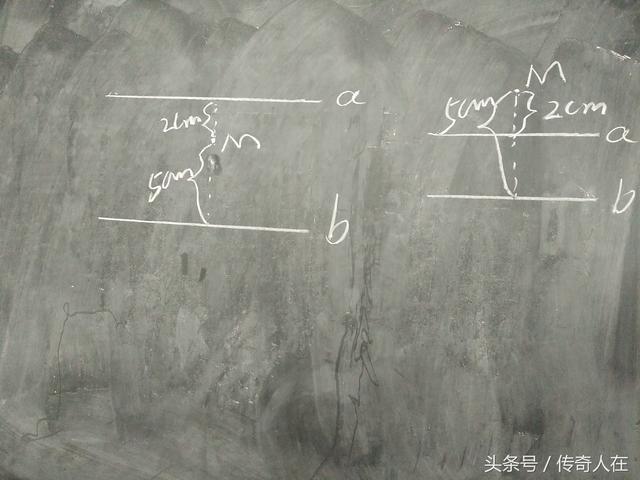 a
2cm
M
5cm
b
M
5cm
2cm
a
b
头条号 / 传奇人在